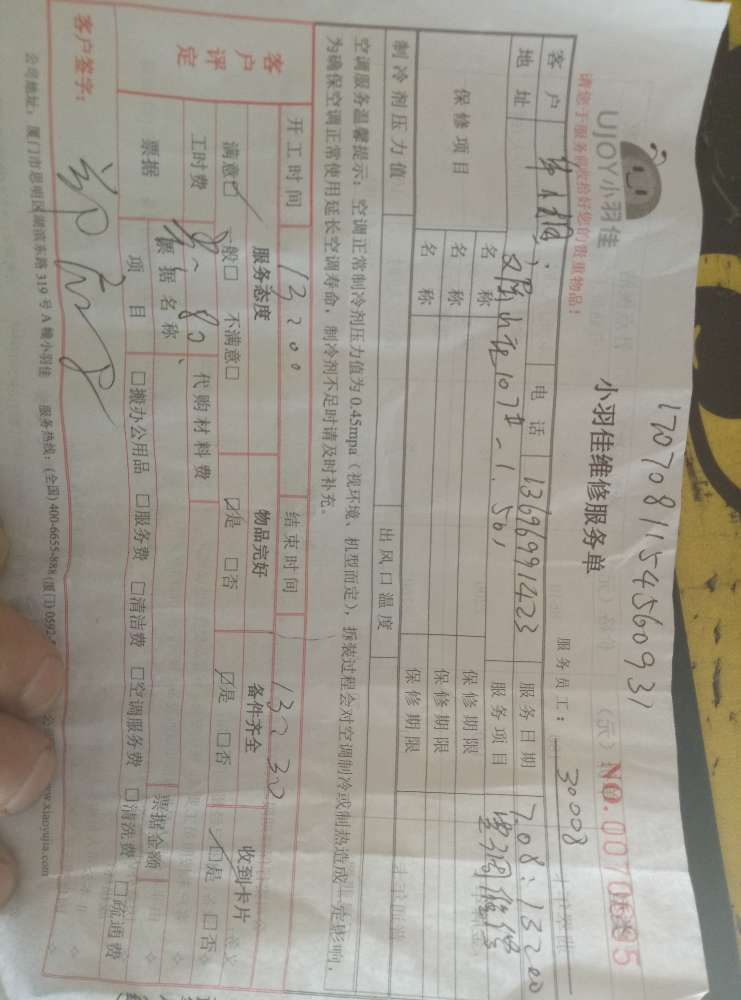 1707081154560931
UJOY小羽佳
小羽佳维修服务单
NO.0070
5
请您于服务前收拾好您的贵重物品！
服务员工： 30008
客户
电话 13696991423 服务日期 7.08:13:00
地址 107# - 1.501 服务项目 空调维修
保修项目 名称 保修期限
名称 保修期限
名称 保修期限
制冷剂压力值 出风口温度
空调服务温馨提示：空调正常制冷剂压力值为0.45mpa（视环境、机型而定），拆装过程会对空调制冷或制热造成一定影响，
为确保空调正常使用延长空调寿命，制冷剂不足时请及时补充。
开工时间 13:00 结束时间 13:30
客户评定 服务态度 物品完好 备件齐全 收到卡片
满意□ 一般□ 不满意□ □是 □否 □是 □否 □是 □否
工时费 80 代购材料费
票据 票据名称 票据金额
项目 □搬办公用品 □服务费 □清洁费 □空调服务费 □清洗费 □疏通费
客户签字：
公司地址：厦门市思明区湖滨东路319号A幢小羽佳 服务热线：(全国) 400-6655-888 (厦门) 0592- www.xiaoyujia.com